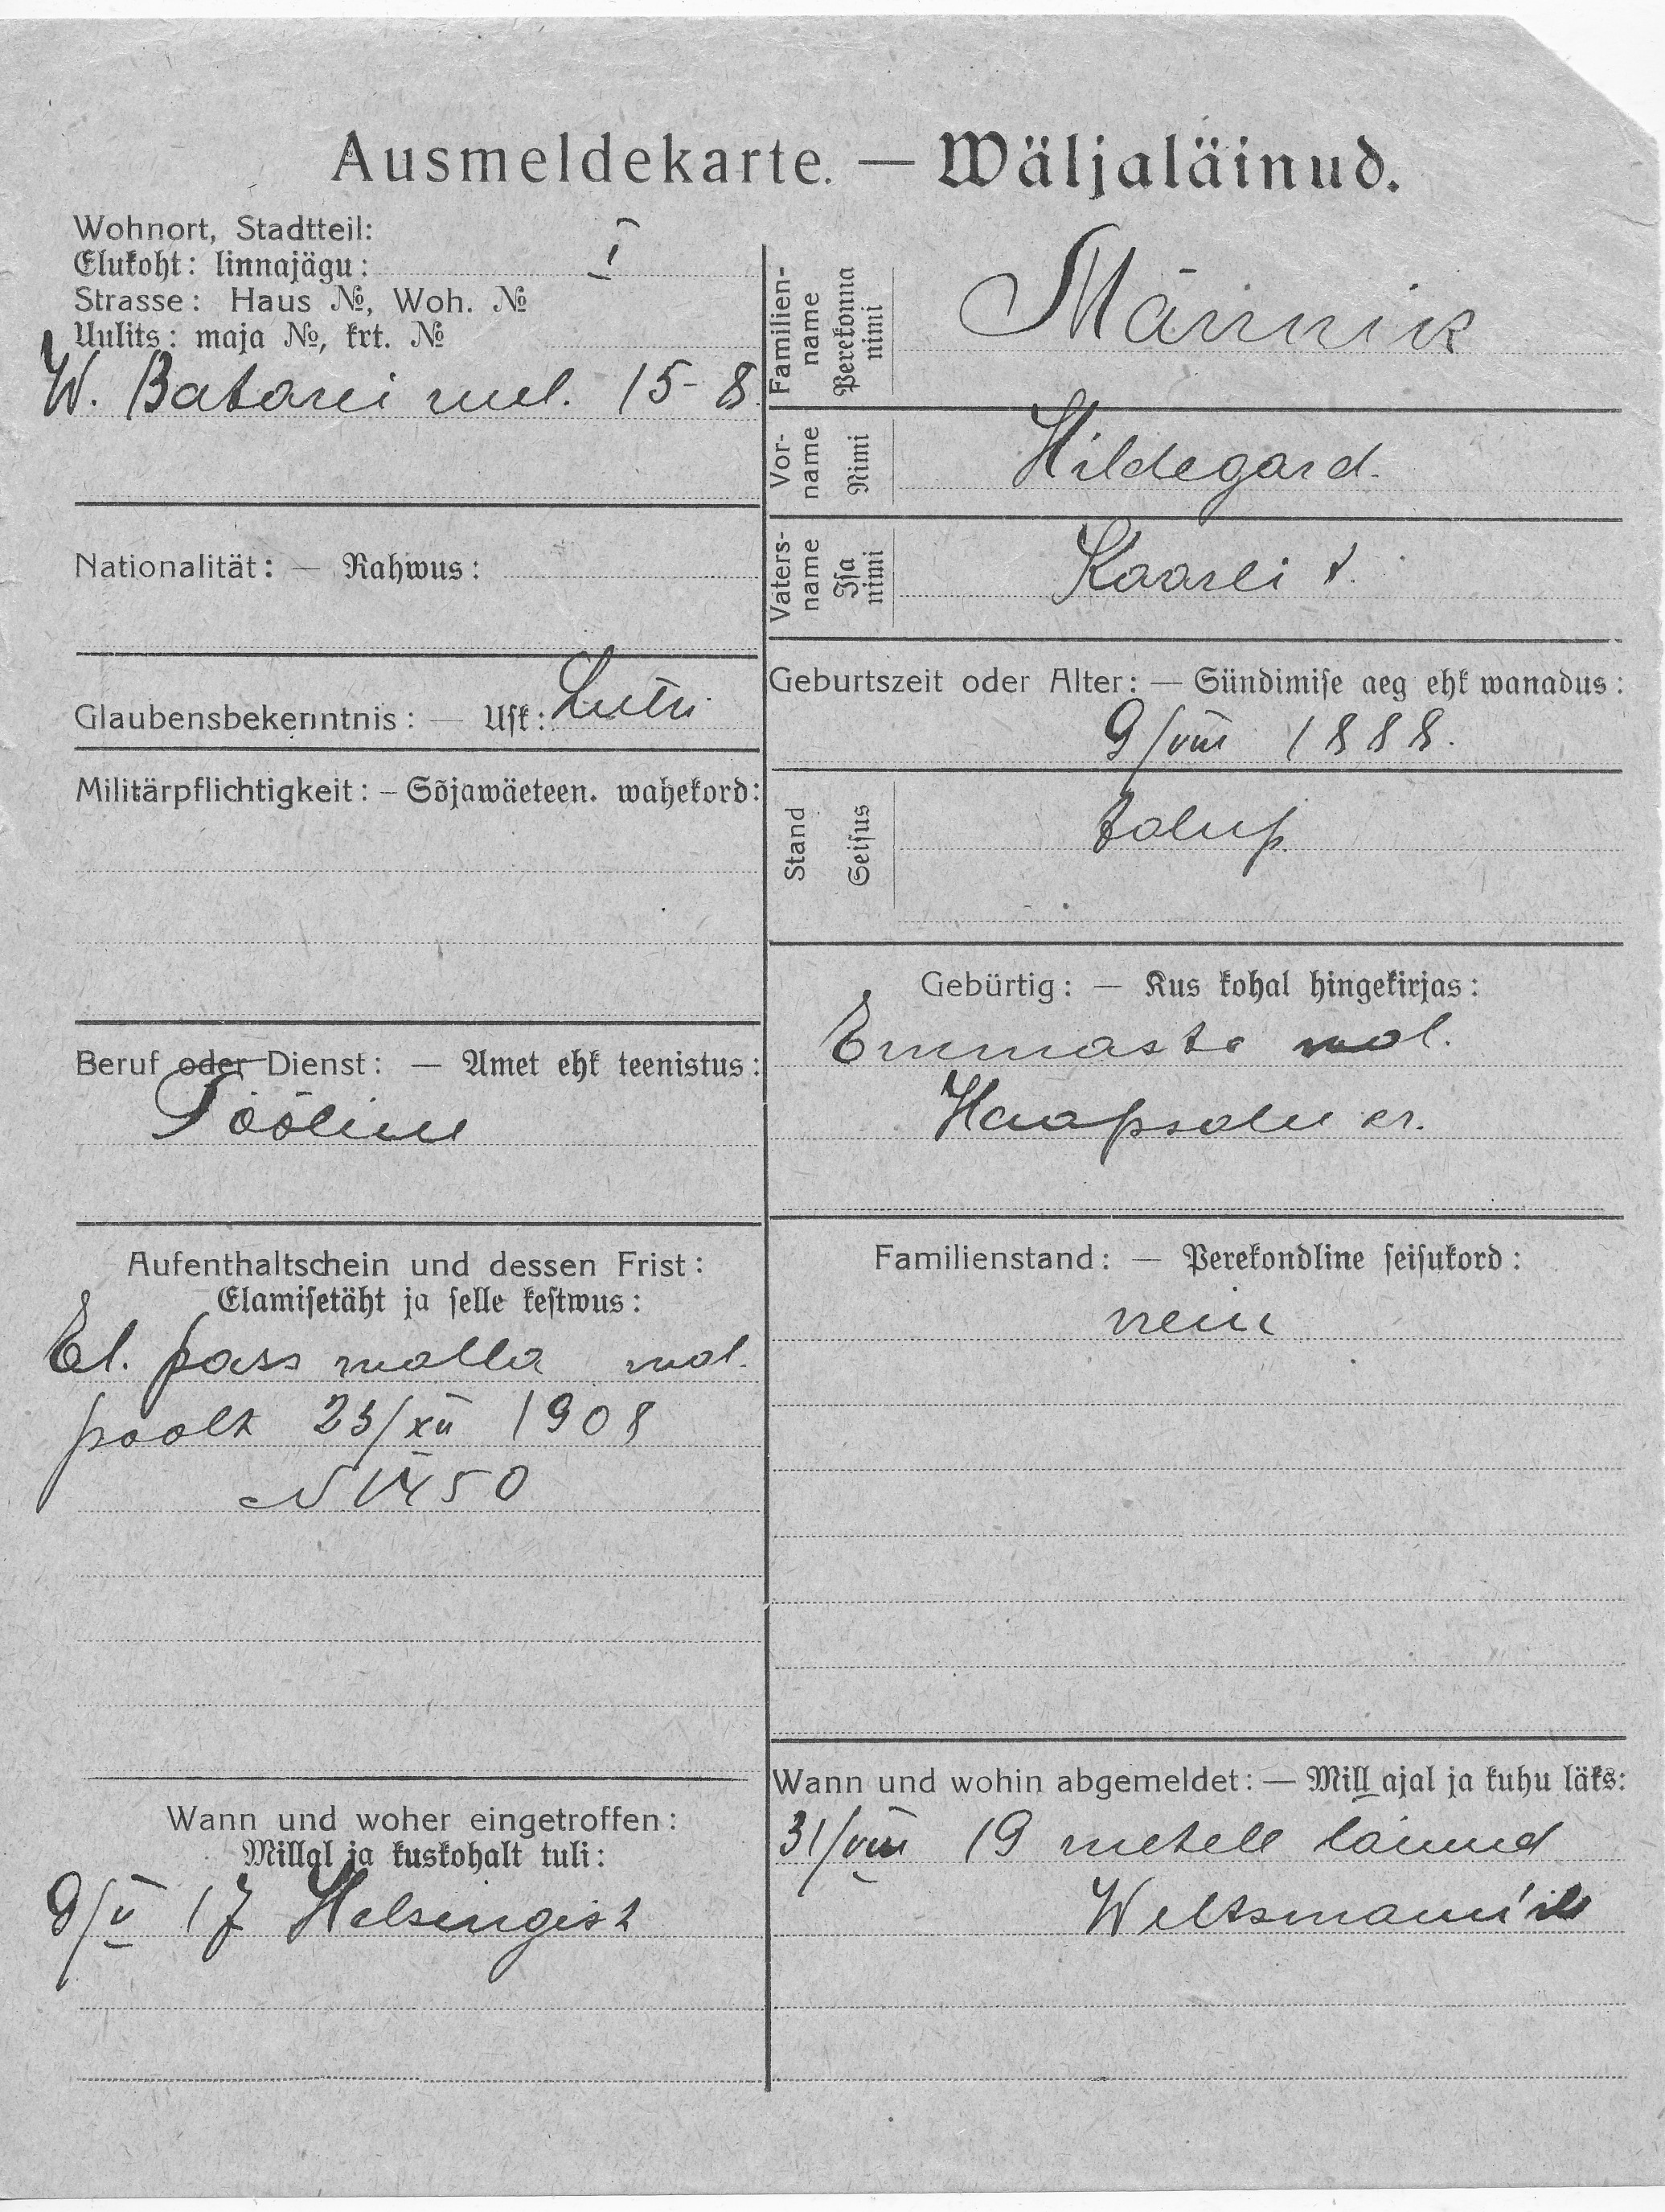 Ausmeldekarte. — Wäljaläinud.
Wohnort, Stadtteil:
Elukoht: linnajägu: I
Strasse: Haus №, Woh. №
Uulits: maja №, krt. №
W. Batarei uul. 15-8.
Nationalität: — Rahwus:
Glaubensbekenntnis: — Usk: Lutri
Militärpflichtigkeit: – Sõjawäeteen. wahekord:
Beruf oder Dienst: — Amet ehk teenistus:
Tööline
Aufenthaltschein und dessen Frist:
Elamisetäht ja selle kestwus:
El. pass walla wal.
poolt 23/XII 1908
N 1450
Wann und woher eingetroffen:
Millal ja kuskohalt tuli:
9/V 17 Helsingist
Familien-name Perekonna nimi
Männik
Vor-name Nimi
Hildegard.
Vaters-name Isa nimi
Kaarli t.
Geburtszeit oder Alter: — Sündimise aeg ehk wanadus:
9/VIII 1888.
Stand Seisus
talup.
Gebürtig: — Kus kohal hingekirjas:
Emmaste wal.
Haapsalu kr.
Familienstand: — Perekondline seisukord:
neiu
Wann und wohin abgemeldet: — Mill ajal ja kuhu läks:
31/VIII 19 mehele läinud
Weltsmann'ile